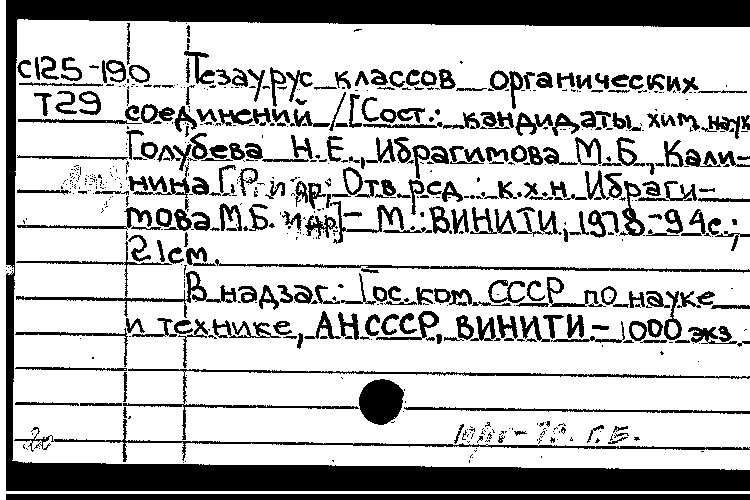 С125-190 Тезаурус классов органических
Т29 соединений /[Сост.: кандидаты хим. наук
Голубева Н.Е., Ибрагимова М.Б., Кали-
нина Г.Р. и др; Отв. ред.: к.х.н. Ибраги-
мова М.Б. и др].- М.: ВИНИТИ, 1978.-94с.;
21см.
В надзаг.: Гос. ком. СССР по науке
и технике, АН СССР, ВИНИТИ.- 1000 экз.
20
Г.Б.